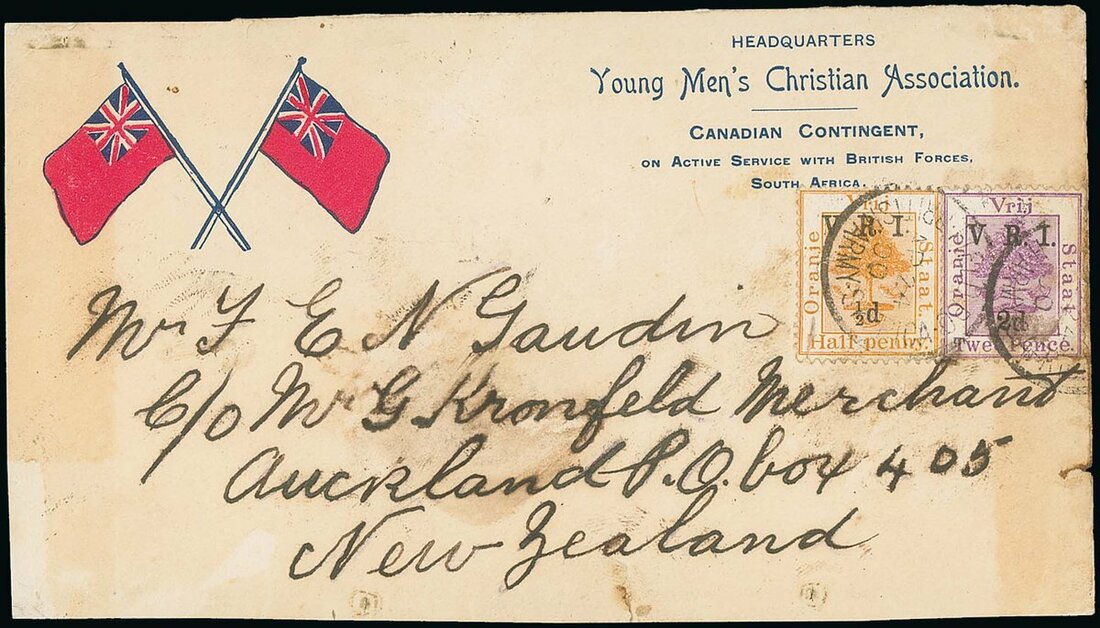 HEADQUARTERS
Young Men's Christian Association.
CANADIAN CONTINGENT,
ON ACTIVE SERVICE WITH BRITISH FORCES,
SOUTH AFRICA.
Vrij
Oranje
Staat.
V. R. I.
½d
Half penny.
Vrij
Oranje
Staat
V. R. I.
2d
Twee Pence.
ARMY
00
Mr F E N Gaudin
C/o Mr G Kronfeld Merchant
Auckland P.O. box 405
New Zealand